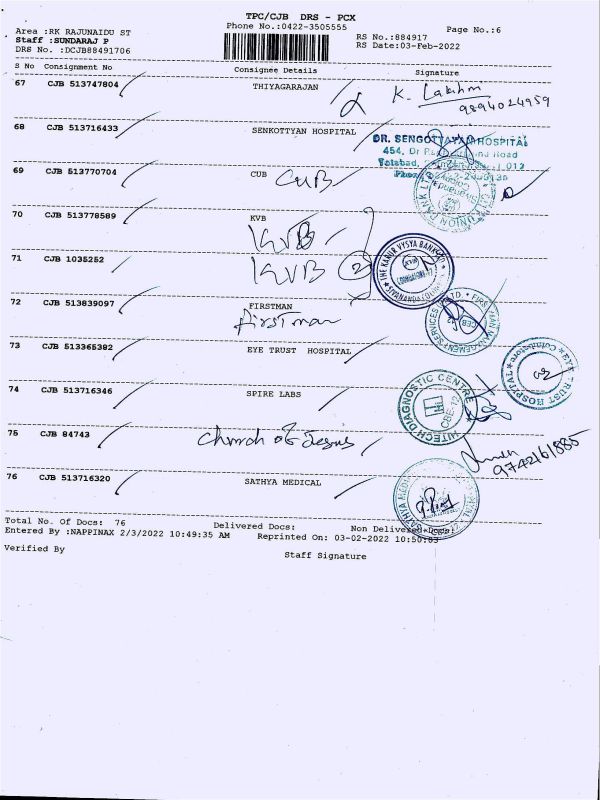 TPC/CJB DRS - PCX
Phone No.:0422-3505555
Page No.:6
Area :RK RAJUNAIDU ST
Staff :SUNDARAJ P
DRS No. :DCJB88491706
RS No.:884917
RS Date:03-Feb-2022
S No Consignment No Consignee Details Signature
67 CJB 513747804 THIYAGARAJAN
K. Lakshm
9894024959
68 CJB 513716433 SENKOTTYAN HOSPITAL
DR. SENGOTTAYAN HOSPITAL
454, Dr Road
Tatabad, 012
69 CJB 513770704 CUB CUB
70 CJB 513778589 KVB
KVB
71 CJB 1035252 KVB 2
THE KARUR VYSYA BANK
72 CJB 513839097 FIRSTMAN
Firstman
73 CJB 513365382 EYE TRUST HOSPITAL
EYE TRUST HOSPITAL Coimbatore
74 CJB 513716346 SPIRE LABS
HITECH DIAGNOSTIC CENTRE
CBE-12
75 CJB 84743 church of Jesus
9742161885
76 CJB 513716320 SATHYA MEDICAL
Total No. Of Docs: 76 Delivered Docs: Non Delivered Docs:
Entered By :NAPPINAX 2/3/2022 10:49:35 AM Reprinted On: 03-02-2022 10:50:03
Verified By Staff Signature